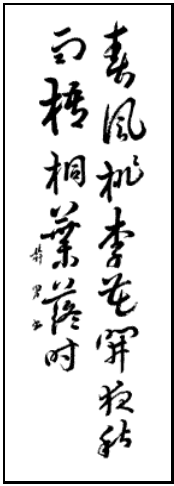 春風桃李花開夜秋
雨梧桐葉落时